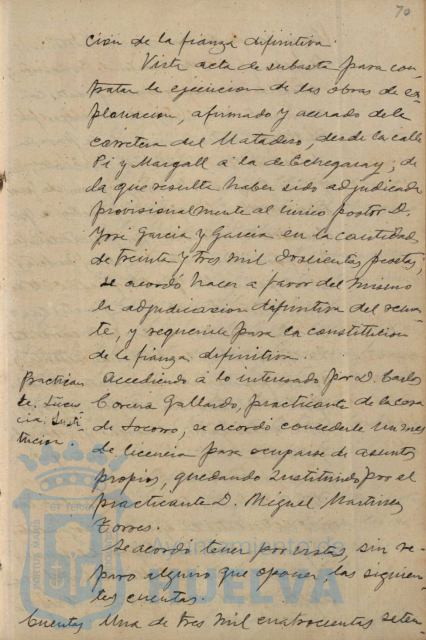 70
ción de la fianza difinitiva.
Vista acta de subasta para con-
tratar la ejecucion de las obras de ex-
planacion, afirmado y acerado de la
carretera del Matadero, desde la calle
Pi y Margall á la de Echegaray, de
la que resulta haber sido adjudicada
provisionalmente al único postor D.
José Garcia y Garcia en la cantidad
de treinta y tres mil doscientas pesetas,
se acordó hacer a favor del mismo
la adjudicacion difinitiva del rema-
te, y requerirle para la constitucion
de la fianza difinitiva.
Practican-
te. Licen-
cia. Susti-
tucion.
Accediendo á lo interesado por D. Carlos
Corcira Gallardo, practicante de la casa
de Socorro, se acordó concederle un mes
de licencia para ocuparse de asuntos
propios, quedando sustituido por el
practicante D. Miguel Martinez
Torres.
Se acordó tener por vistas, sin re-
paro alguno que oponer, las siguien-
tes cuentas.
Cuentas
Una de tres mil cuatrocientas seten-
Ayuntamiento de
HUELVA